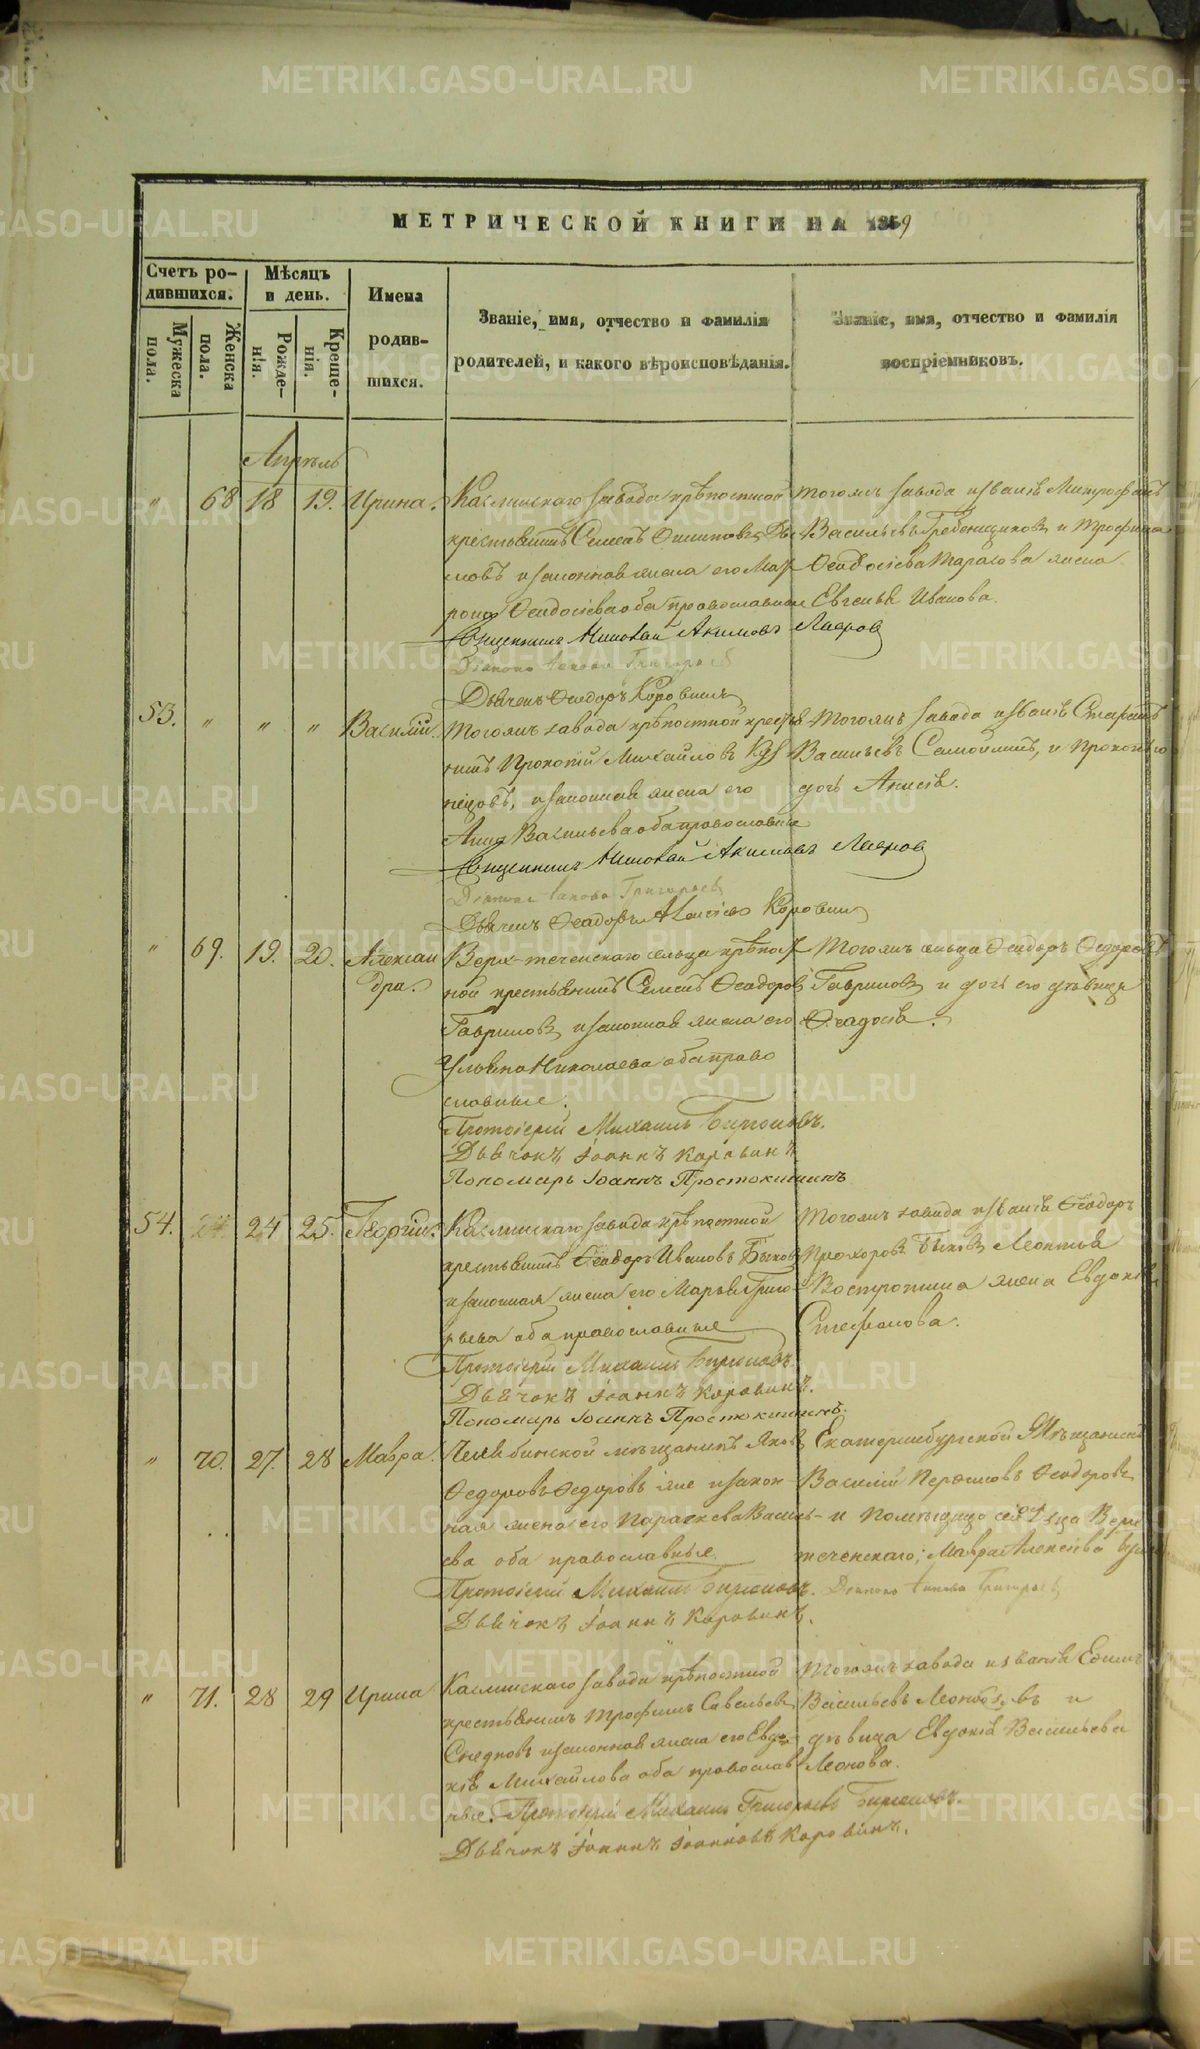 МЕТРИЧЕСКОЙ КНИГИ НА 1859
Счетъ ро-
дившихся.
Мѣсяцъ
и день.
Имена
родив-
шихся.
Званіе, имя, отчество и фамилія
родителей, и какого вѣроисповѣданія.
Званіе, имя, отчество и фамилія
воспріемниковъ.
Мужеска
пола.
Женска
пола.
Рожде-
нія.
Креще-
нія.
Апрѣль
" 68 18 19. Ирина.
Каслинскаго завода крѣпостной
крестьянинъ Семенъ Филиповъ
и законная жена его Мат
рона Феодосіева оба православные
Священникъ Николай Акимовъ Лавровъ
Діаконъ Іаковъ Григорьевъ
Дьячекъ Феодоръ Коровинъ
тогожъ завода изванія Митрофанъ
Васильевъ Гребенщиковъ и Трофима
Феодосіева Тарасова жена
Евгенія Иванова.
53. " " " Василій.
тогожъ завода крѣпостной крестья
нинъ Прокопій Михайловъ Куз
нецовъ, и законная жена его
Анна Васильева оба православные
Священникъ Николай Акимовъ Лавровъ
Діаконъ Іаковъ Григорьевъ
Дьячекъ Феодоръ Алексіевъ Коровинъ
тогожъ завода изванія Стефанъ
Васильевъ Самойлинъ, и Прокопьева
дочь Анисія.
" 69. 19. 20. Алексан
дра.
Верх-теченскаго сельца крѣпост
ной крестьянинъ Семенъ Феодоровъ
Гавриловъ и законная жена его
Ульяна Николаева оба право
славные.
Протоіерей Михаилъ Бирюковъ.
Дьячокъ Іоаннъ Коровинъ
Пономарь Іоаннъ Простокишинъ
Тогожъ сельца Феодоръ Федоровъ
Гавриловъ и дочь его дѣвица
Феадосія.
54. 24 25. Георгій.
Каслинскаго завода крѣпостной
крестьянинъ Феодоръ Ивановъ Быковъ
и законная жена его Марья Григо
рьева оба православные
Протоіерей Михаилъ Бирюковъ
Дьячокъ Іоаннъ Коровинъ.
Пономарь Іоаннъ Простокишинъ.
Тогожъ завода изванія Феодоръ
Прохоровъ Быковъ Леонтья
Востротина жена Евдокія
Стефанова.
" 70. 27. 28 Мавра.
Челябинской мѣщанинъ Яковъ
Федоровъ Федоровъ же и закон
ная жена его Параскева Василь-
ева оба православные.
Протоіерей Михаилъ Бирюковъ.
Дьячокъ Іоаннъ Коровинъ.
Екатеринбургской Мѣщанинъ
Василій Феодоровъ
и помѣщица сельца Верх
теченскаго; Мавра Алексіева
Діаконъ Іаковъ Григорьевъ
" 71. 28 29 Ирина
Каслинскаго завода крѣпостной
крестьянинъ Трофимъ Савельевъ
и законная жена его Евдо
кія Михайлова оба православ
ные. Протоіерей Михаилъ Григорьевъ Бирюковъ.
Дьячокъ Іоаннъ Іоанновъ Коровинъ.
Тогожъ завода изванія Ефимъ
Васильевъ и
дѣвица Евдокія Васильева
Леонова.
METRIKI.GASO-URAL.RU